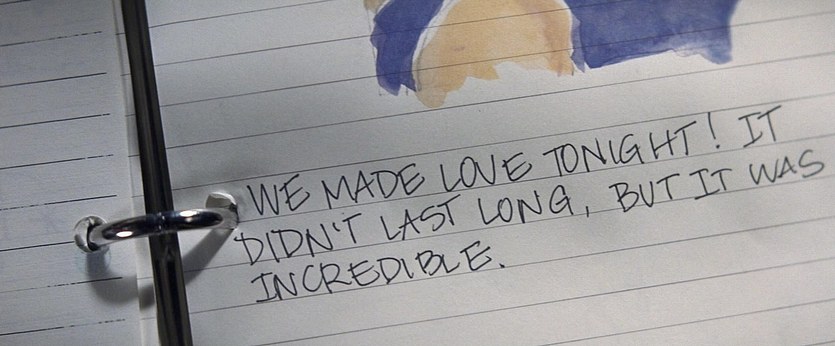 WE MADE LOVE TONIGHT! IT
DIDN'T LAST LONG, BUT IT WAS
INCREDIBLE.